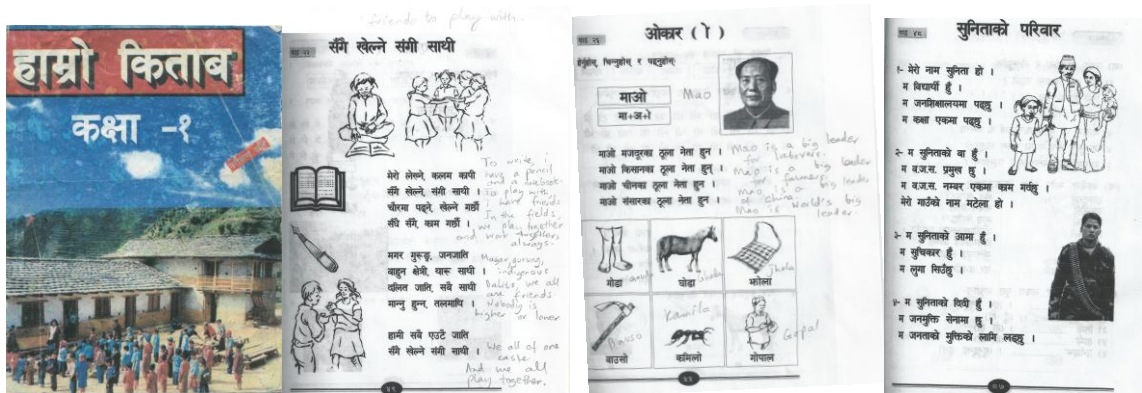 हाम्रो किताब
कक्षा -१
friends to play with...
सँगै खेल्ने संगी साथी
मेरो लेख्ने, कलम कापी
सँगै खेल्ने, संगी साथी ।
चौरमा पढ्ने, खेल्ने गर्छौं
सँधै सँगै, काम गर्छौं ।
To write, I
have a pencil
and a notebook.
To play with
I have friends
In the fields,
we play together
and work together,
always.
मगर गुरूङ, जनजाति
बाहुन क्षेत्री, थारू साथी ।
दलित जाति, सबै साथी
मान्नु हुन्न, तलमाथि ।
Magar, gurung,
indigenous
Dalits, we all
are friends
Nobody is
higher or lower
हामी सबै एउटै जाति
सँगै खेल्ने संगी साथी ।
We all of one
caste.
And we all
play together.
४९
ओकार ( ो )
हेर्नुहोस्, चिन्नुहोस् र पढ्नुहोस्
माओ
Mao
मा+अ+ो
माओ मजदूरका ठूला नेता हुन ।
माओ किसानका ठूला नेता हुन् ।
माओ चीनका ठूला नेता हुन ।
माओ संसारका ठूला नेता हुन ।
Mao is a big leader
for laborers.
Mao is a big leader
for farmers.
Mao is a big leader
of china.
Mao is world's big
leader.
मोजा
घोडा
झोला
Jhola
बाउसो
Bauso
कमिलो
Kamila
गोपाल
Gopal
सुनिताको परिवार
१- मेरो नाम सुनिता हो ।
म विद्यार्थी हुँ ।
म जनशिक्षालयमा पढ्छु ।
म कक्षा एकमा पढ्छु ।
२- म सुनिताको बा हुँ ।
म व.ज.स. प्रमुख हुँ ।
म व.ज.स. नम्बर एकमा काम गर्दछु ।
मेरो गाउँको नाम मटेला हो ।
३- म सुनिताको आमा हुँ ।
म सुचिकार हुँ ।
म लुगा सिउँछु ।
४- म सुनिताको दिदी हुँ ।
म जनमुक्ति सेनामा छु ।
म जनताको मुक्तिको लागि लड्छु ।